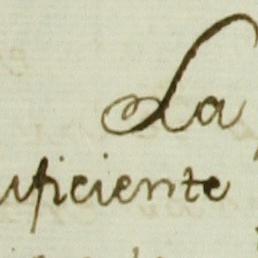 La
uficiente